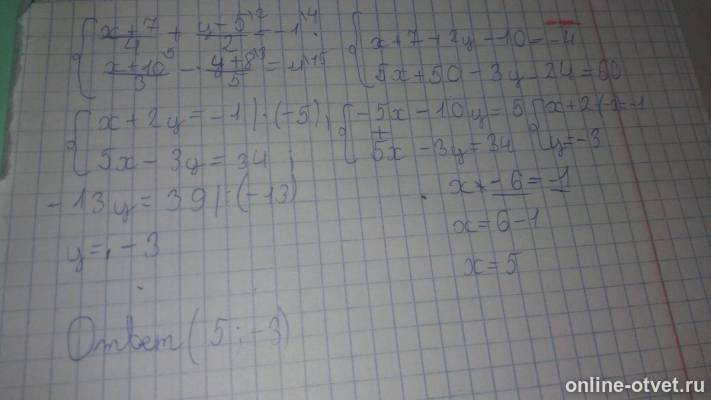 { x+7/4 + y-5\2/2 = -1\4
{ x+10\5/3 - y+8\3/5 = 4\15
{ x+7+2y-10=-4
5x+50-3y-24=60
{ x+2y=-1 |·(-5)
5x-3y=34
{ -5x-10y=5
+
5x-3y=34
{ x+2(-3)=-1
y=-3
-13y=39 |:(-13)
y=-3
x-6=-1
x=6-1
x=5
Ответ (5;-3)
online-otvet.ru